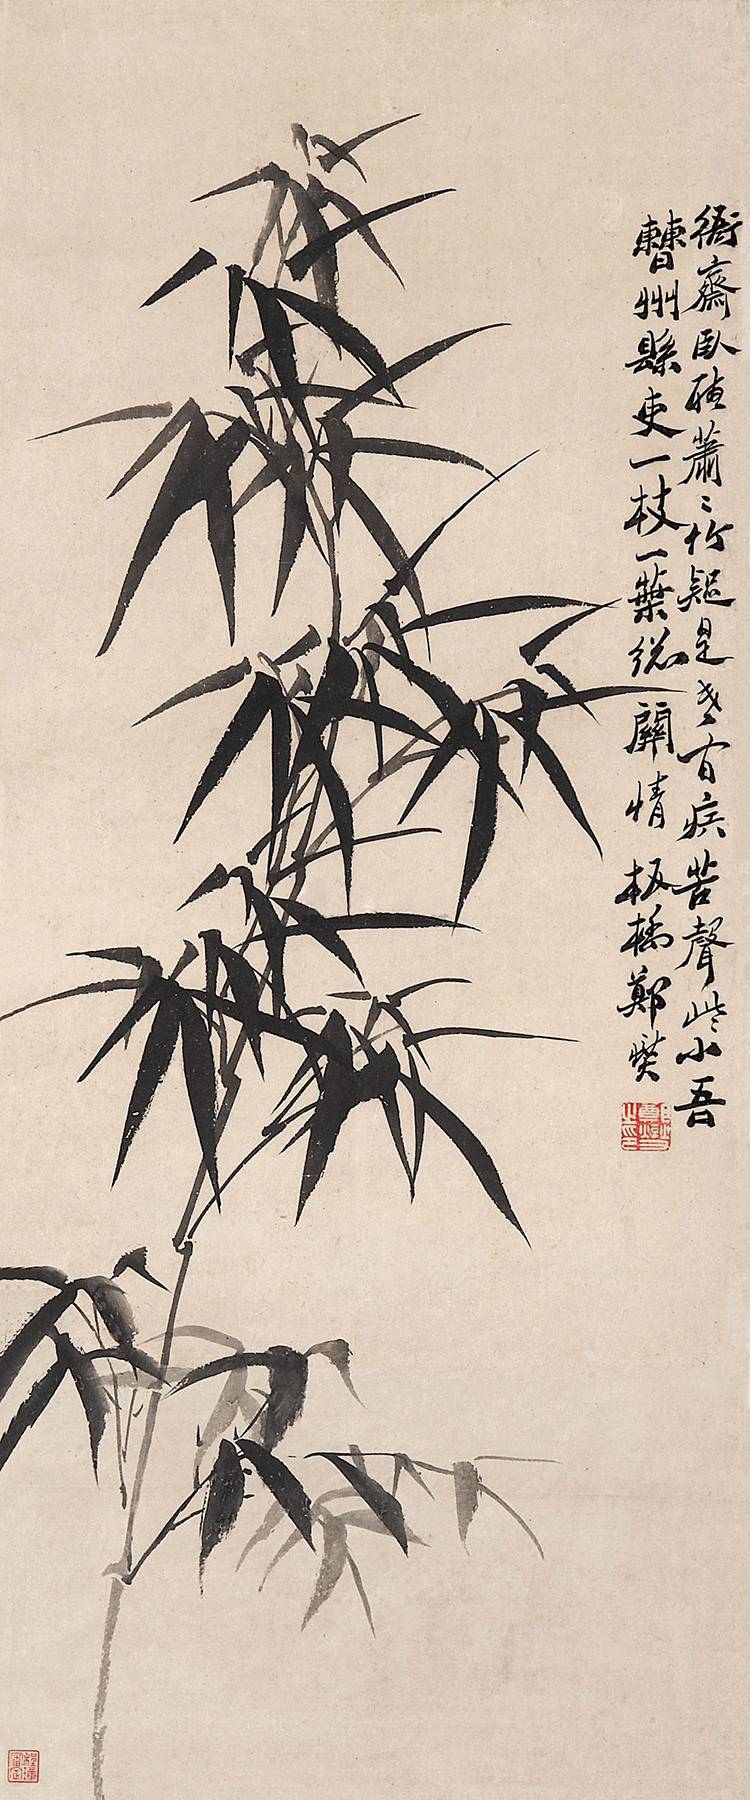 衙齋臥聽蕭〻竹疑是民間疾苦聲些小吾
曹州縣吏一枝一葉總關情 板橋鄭燮